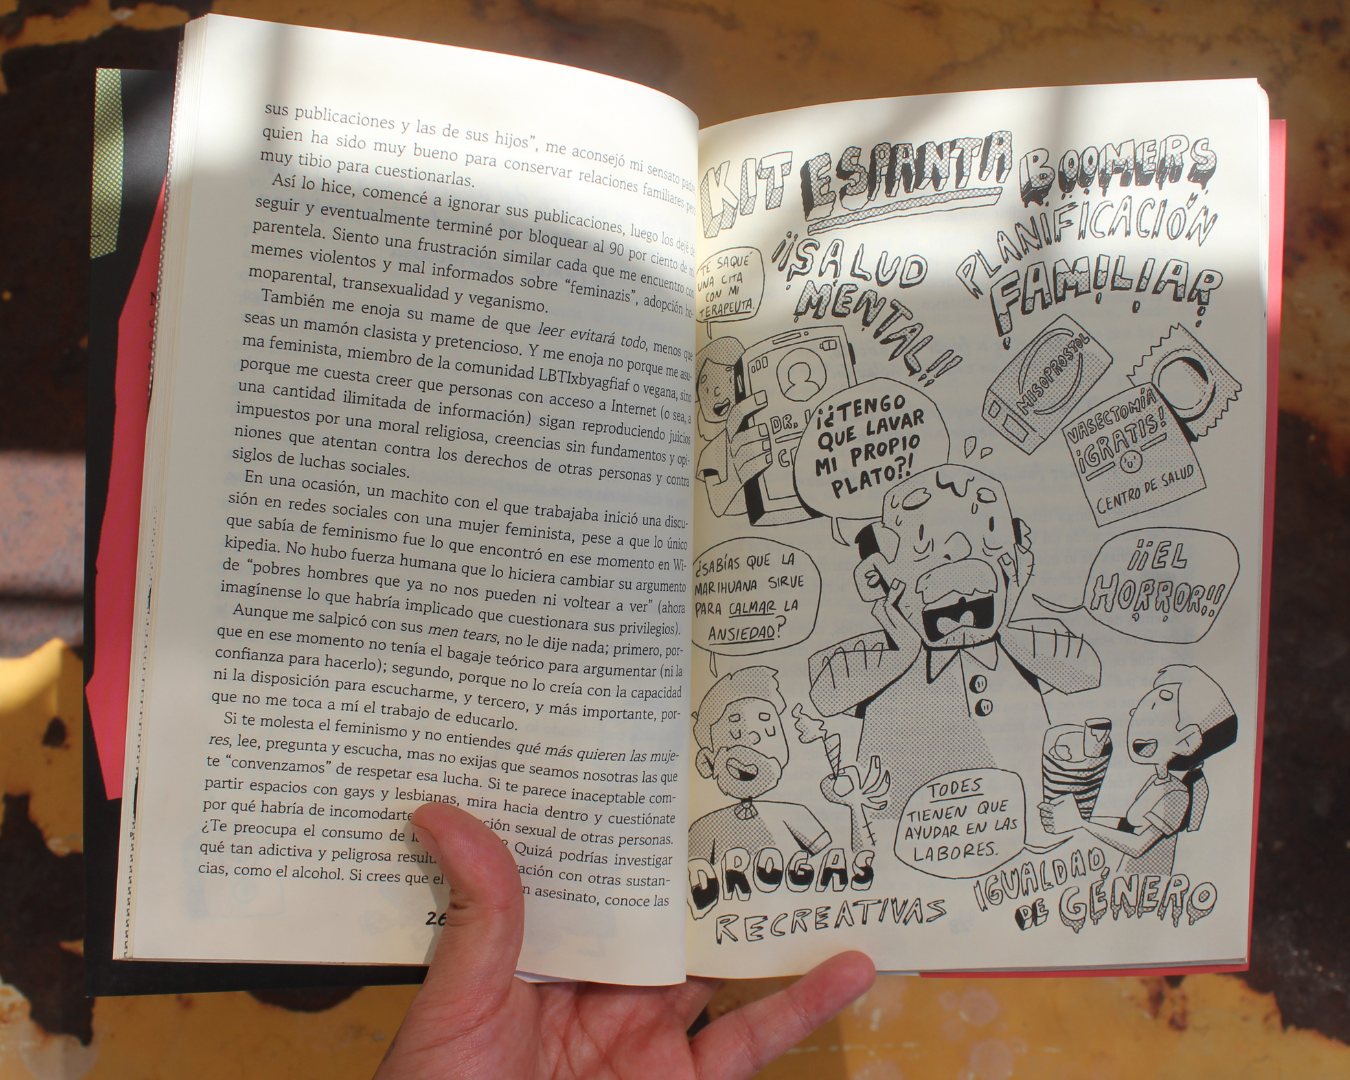 sus publicaciones y las de sus hijos”, me aconsejó mi sensato padre
quien ha sido muy bueno para conservar relaciones familiares pero
muy tibio para cuestionarlas.
Así lo hice, comencé a ignorar sus publicaciones, luego los dejé de
seguir y eventualmente terminé por bloquear al 90 por ciento de mi
parentela. Siento una frustración similar cada que me encuentro con
memes violentos y mal informados sobre “feminazis”, adopción ho-
moparental, transexualidad y veganismo.
También me enoja su mame de que leer evitará todo, menos que
seas un mamón clasista y pretencioso. Y me enoja no porque me asu-
ma feminista, miembro de la comunidad LBTIxbyagfiaf o vegana, sino
porque me cuesta creer que personas con acceso a Internet (o sea, a
una cantidad ilimitada de información) sigan reproduciendo juicios
impuestos por una moral religiosa, creencias sin fundamentos y opi-
niones que atentan contra los derechos de otras personas y contra
siglos de luchas sociales.
En una ocasión, un machito con el que trabajaba inició una discu-
sión en redes sociales con una mujer feminista, pese a que lo único
que sabía de feminismo fue lo que encontró en ese momento en Wi-
kipedia. No hubo fuerza humana que lo hiciera cambiar su argumento
de “pobres hombres que ya no nos pueden ni voltear a ver” (ahora
imagínense lo que habría implicado que cuestionara sus privilegios).
Aunque me salpicó con sus men tears, no le dije nada; primero, por-
que en ese momento no tenía el bagaje teórico para argumentar (ni la
confianza para hacerlo); segundo, porque no lo creía con la capacidad
ni la disposición para escucharme, y tercero, y más importante, por-
que no me toca a mí el trabajo de educarlo.
Si te molesta el feminismo y no entiendes qué más quieren las muje-
res, lee, pregunta y escucha, mas no exijas que seamos nosotras las que
te “convenzamos” de respetar esa lucha. Si te parece inaceptable com-
partir espacios con gays y lesbianas, mira hacia dentro y cuestiónate
por qué habría de incomodarte ción sexual de otras personas.
¿Te preocupa el consumo de Quizá podrías investigar
qué tan adictiva y peligrosa resul ación con otras sustan-
cias, como el alcohol. Si crees que el n asesinato, conoce las
26
KIT ESPANTA BOOMERS
TE SAQUÉ
UNA CITA
CON MI
TERAPEUTA.
¡¡SALUD
MENTAL!!
PLANIFICACIÓN
FAMILIAR
MISOPROSTOL
VASECTOMÍA
¡GRATIS!
CENTRO DE SALUD
DR.
¡¿TENGO
QUE LAVAR
MI PROPIO
PLATO?!
¿SABÍAS QUE LA
MARIHUANA SIRVE
PARA CALMAR LA
ANSIEDAD?
¡¡EL
HORROR!!
TODES
TIENEN QUE
AYUDAR EN LAS
LABORES.
DROGAS
RECREATIVAS
IGUALDAD
DE GÉNERO